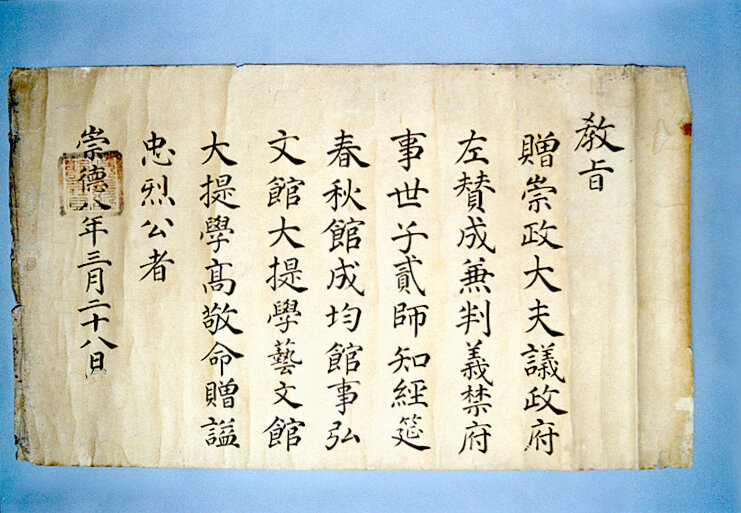 教旨
贈崇政大夫議政府
左賛成兼判義禁府
事世子貳師知經筵
春秋館成均館事弘
文館大提學藝文館
大提學高敬命贈謚
忠烈公者
崇德八年三月二十八日